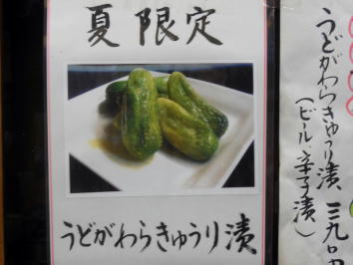 夏限定
うどがわらきゅうり漬
うどがわらきゅうり漬 三九〇円
(ビール、辛子漬)